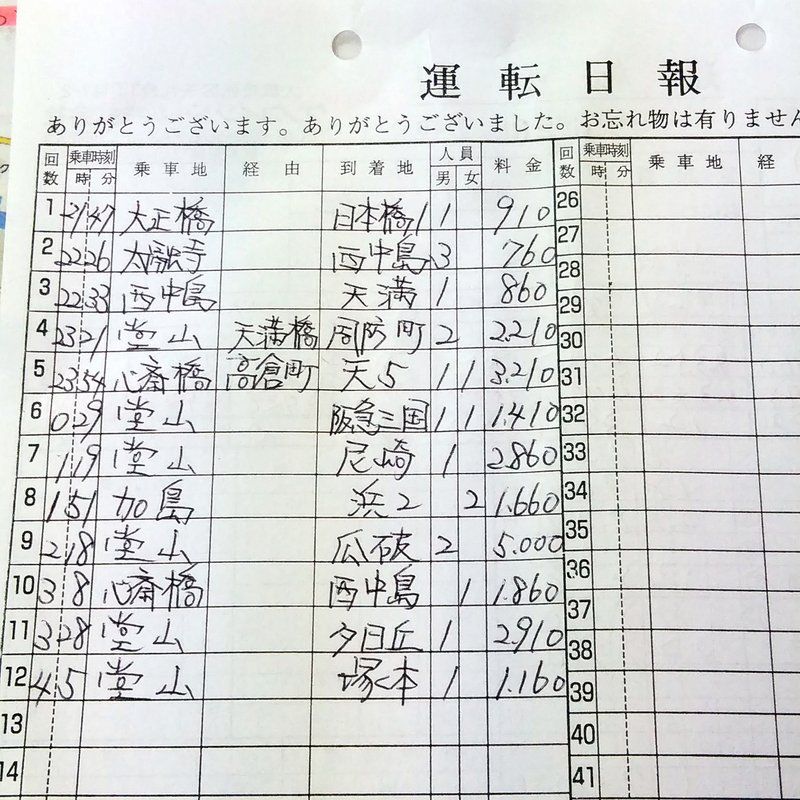 運転日報
ありがとうございます。ありがとうございました。お忘れ物は有りません
回数 乗車時刻 時 分 乗車地 経由 到着地 人員 男 女 料金 回数 乗車時刻 時 分 乗車地 経
1 21 47 大正橋 日本橋1 1 910 26
2 22 26 太融寺 西中島 3 760 27
3 22 33 西中島 天満 1 860 28
4 23 21 堂山 天満橋 周防町 2 2.210 29
5 23 54 心斎橋 高倉町 天5 1 1 3.210 30
6 0 29 堂山 阪急三国 1 1 1.410 31
7 1 19 堂山 尼崎 1 2.860 32
8 1 51 加島 浜2 2 1.660 33
9 2 18 堂山 瓜破 2 5.000 34
10 3 8 心斎橋 西中島 1 1.860 35
11 3 28 堂山 夕日丘 1 2.910 36
12 4 5 堂山 塚本 1 1.160 37
13 38
14 39
40
41